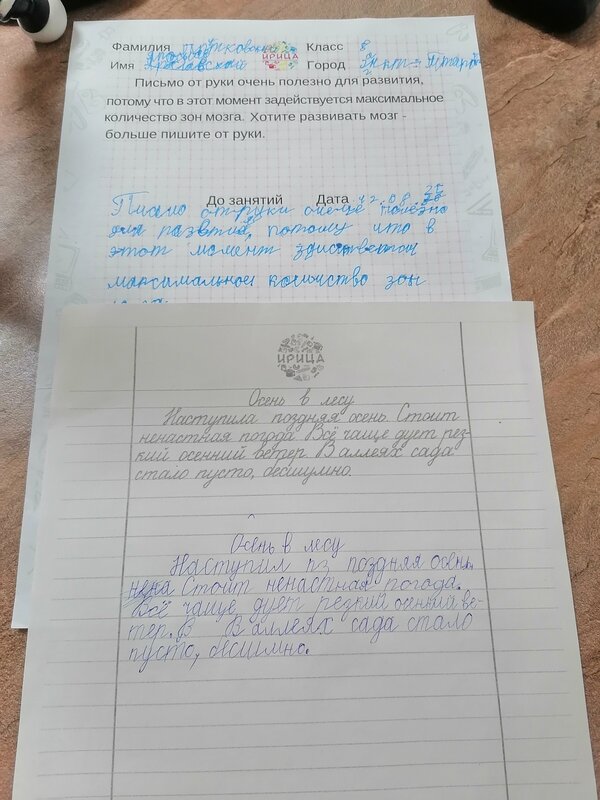 Фамилия Класс 8
ИРИЦА
Имя Город
Письмо от руки очень полезно для развития,
потому что в этот момент задействуется максимальное
количество зон мозга. Хотите развивать мозг -
больше пишите от руки.
До занятий Дата
Писмо от руки полезно
для развтия, потому что в
этот момент
максимальное количство зон
ИРИЦА
Осень в лесу
Наступила поздняя осень. Стоит
ненастная погода. Всё чаще дует рез-
кий осенний ветер. В аллеях сада
стало пусто, бесшумно.
Осень в лесу
Наступил пз поздняя осень.
нена Стоит ненастная погода.
Всё чаще дует резкий осенний ве-
тер. В В аллеях сада стало
пусто, бесшмно.